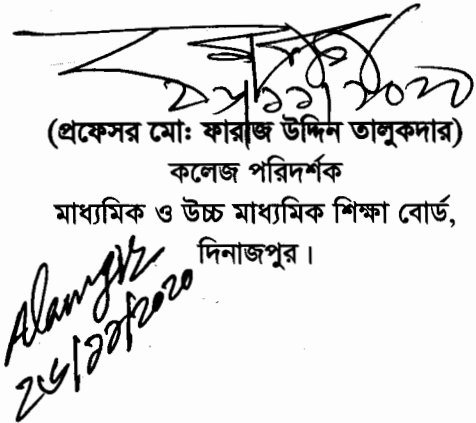 ২৬/১১/২০২০
(প্রফেসর মো: ফারাজ উদ্দিন তালুকদার)
কলেজ পরিদর্শক
মাধ্যমিক ও উচ্চ মাধ্যমিক শিক্ষা বোর্ড,
দিনাজপুর।
Alamgir
২৬/১১/২০২০